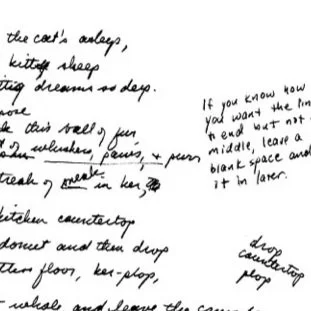 the cat's asleep,
kitty sleep
dreams so deep.
this ball of fur
of whiskers, paws, + purr
streak of meak in her,
kitchen countertop
donut and then drop
floor, ker-plop,
whole and leave the
If you know how
you want the lin
end but not
middle, leave a
blank space and
it in later.
drop
countertop
plop